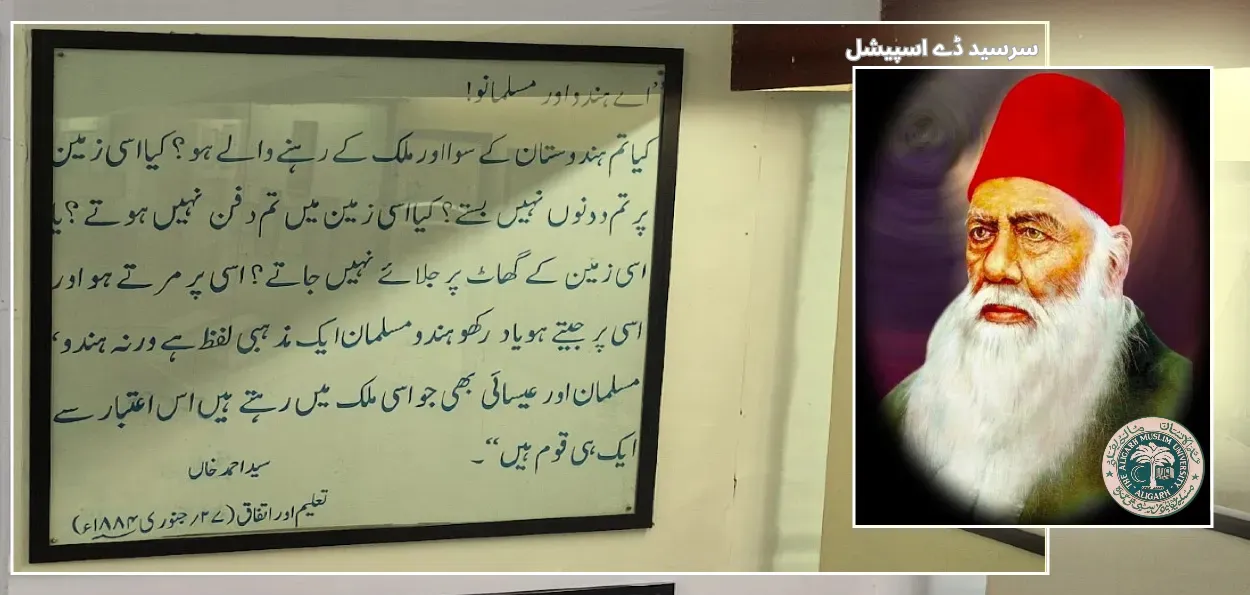 سرسید ڈے اسپیشل
”اے ہندو اور مسلمانو!
کیا تم ہندوستان کے سوا اور ملک کے رہنے والے ہو؟ کیا اسی زمین
پر تم دونوں نہیں بستے؟ کیا اسی زمین میں تم دفن نہیں ہوتے؟ یا
اسی زمین کے گھاٹ پر جلائے نہیں جاتے؟ اسی پر مرتے ہو اور
اسی پر جیتے ہو یاد رکھو ہندو مسلمان ایک مذہبی لفظ ہے ورنہ ہندو،
مسلمان اور عیسائی بھی جو اسی ملک میں رہتے ہیں اس اعتبار سے
ایک ہی قوم ہیں“۔
سید احمد خاں
تعلیم اور اتفاق (۲۷؍ جنوری ۱۸۸۴ء)
THE ALIGARH MUSLIM UNIVERSITY
ALIGARH